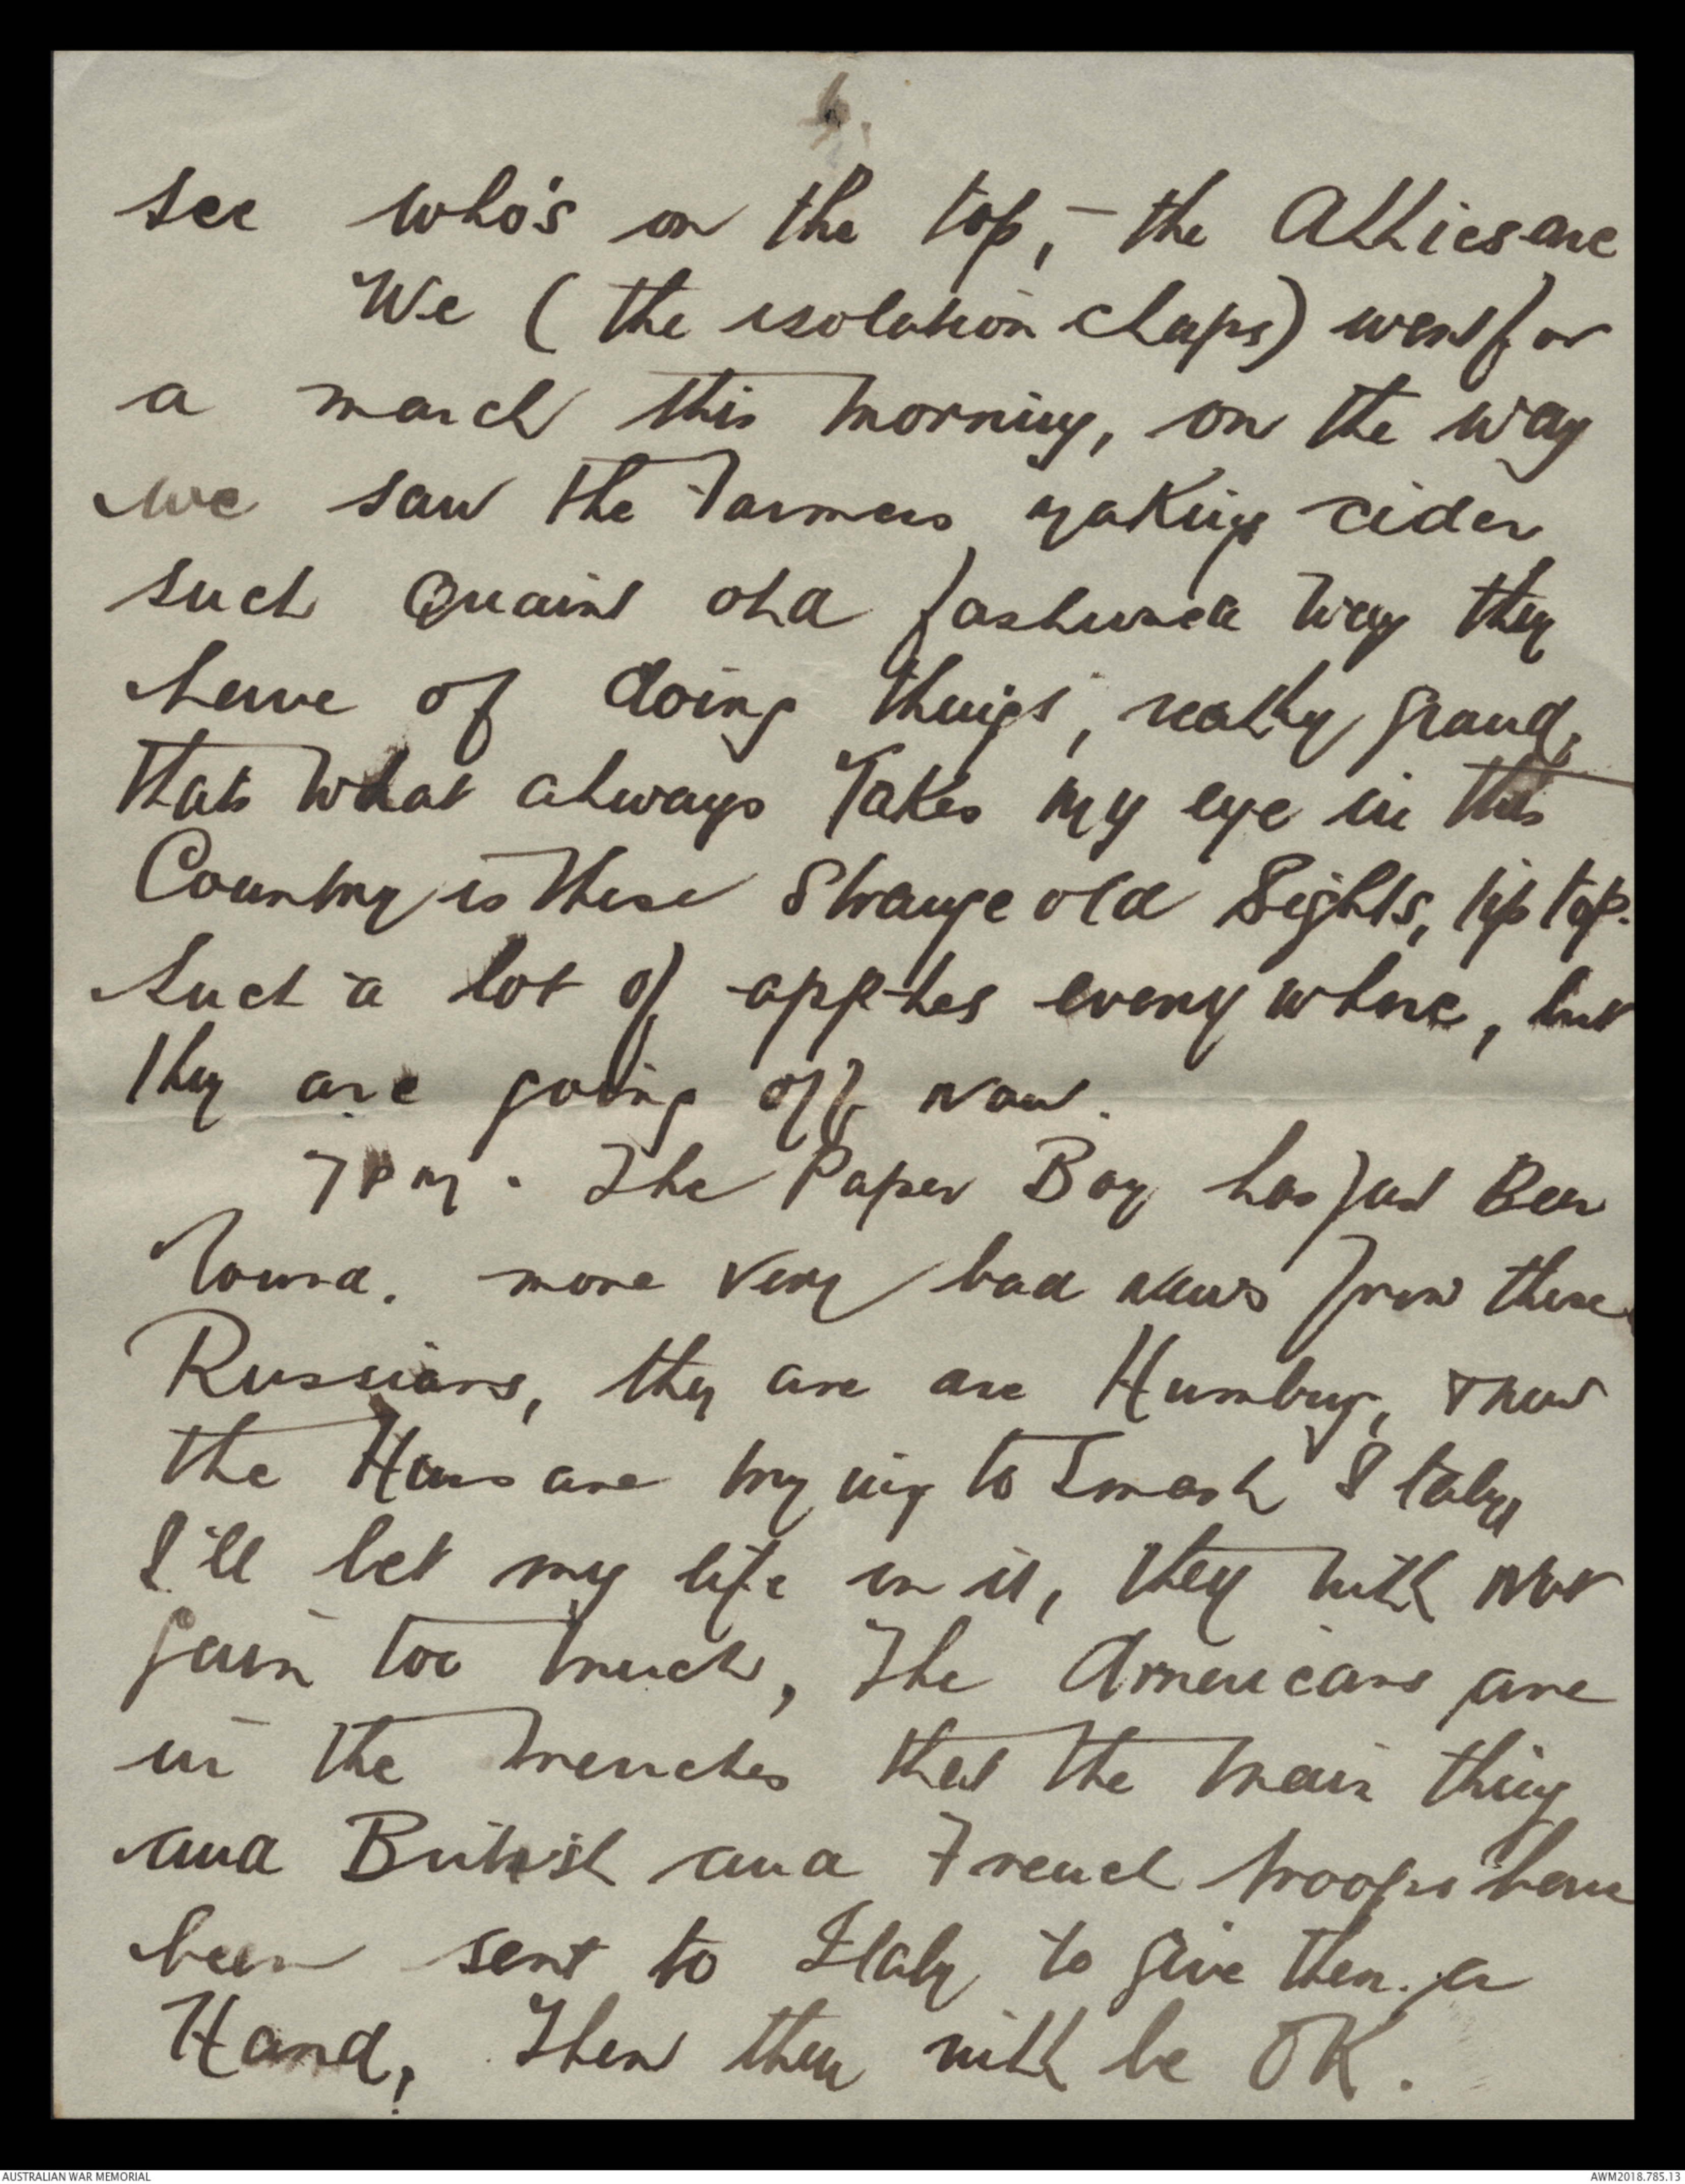 6.
see who's on the top, – the Allies are
We (the isolation chaps) went for
a march this morning, on the way
we saw the Farmers making cider
such quaint old fashioned way they
have of doing things, really grand,
thats what always takes my eye in this
Country is these strange old Sights, tip top.
Such a lot of apples every where, but
they are going off now.
7 PM. The Paper Boy has just Been
round. more very bad news from these
Russians, they are are Humbug, & now
the Huns are trying to smash Italy,
I'll bet my life on it, they will not
gain too much, The Americans are
in the trenches that the main thing
and British and French troops have
been sent to Italy to give them a
Hand, Then they will be OK.
AUSTRALIAN WAR MEMORIAL
AWM2018.785.13